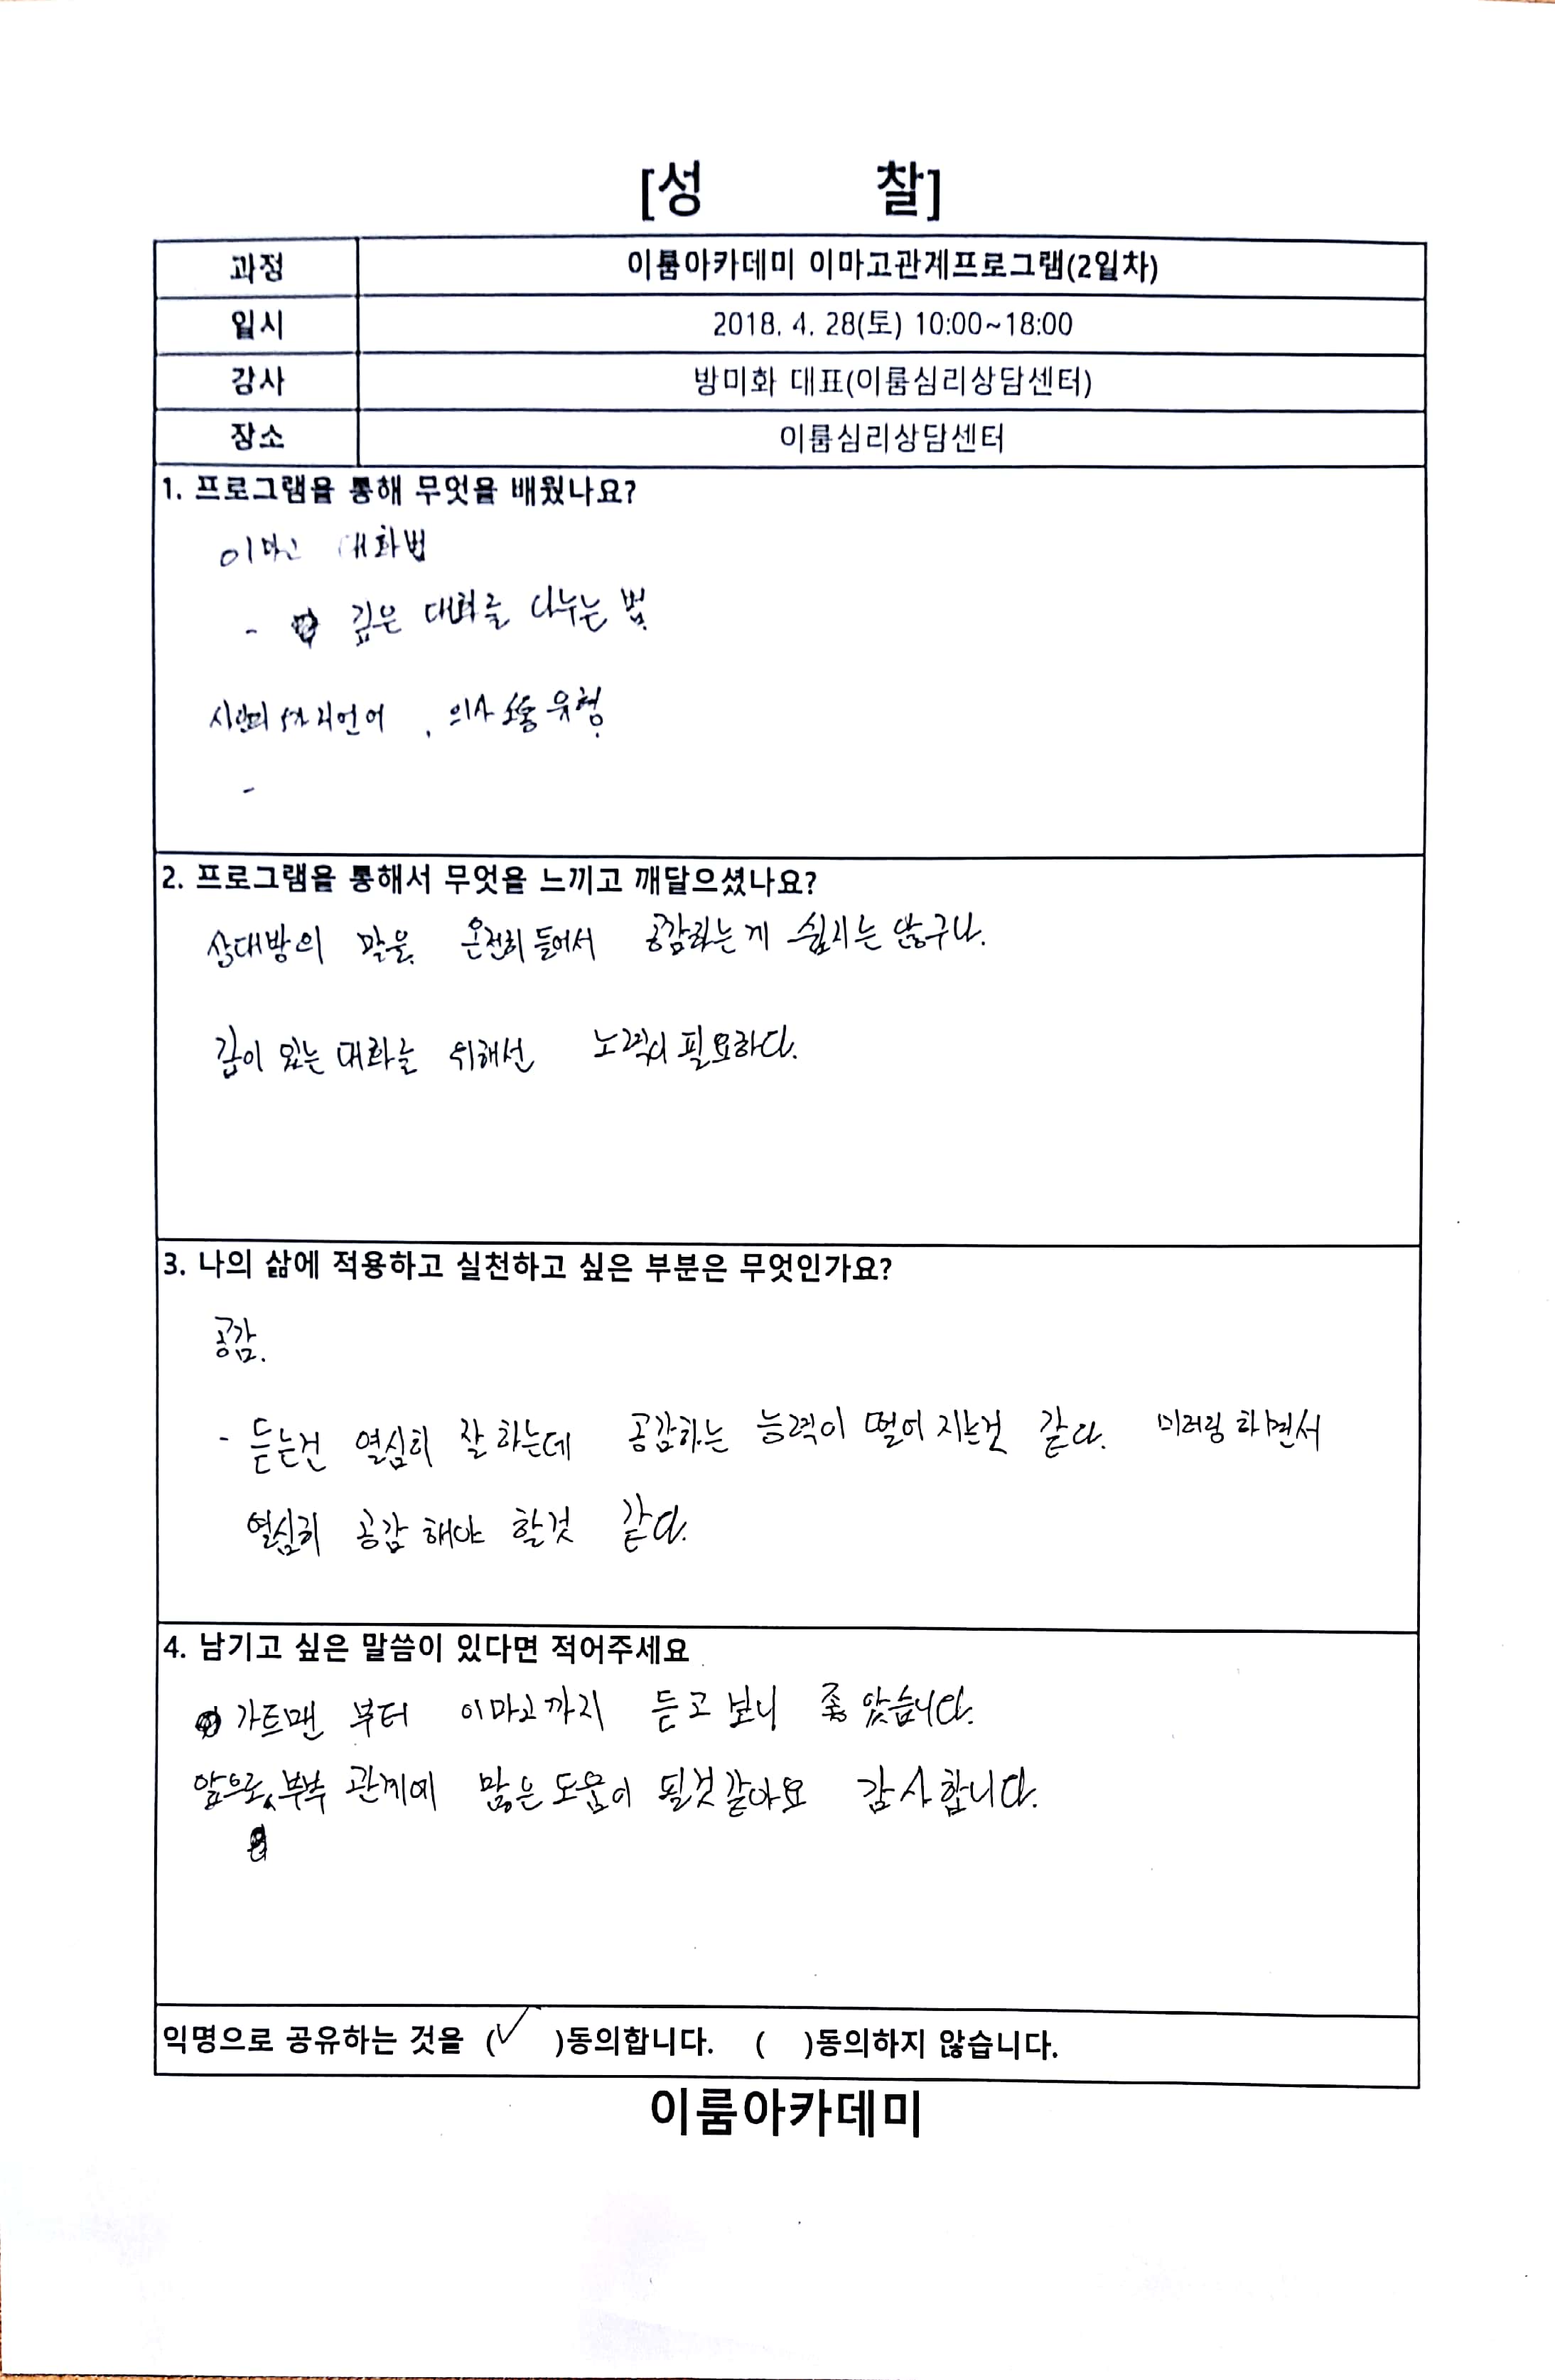 [성 찰]
과정 이룸아카데미 이마고관계프로그램(2일차)
일시 2018. 4. 28(토) 10:00~18:00
강사 방미화 대표(이룸심리상담센터)
장소 이룸심리상담센터
1. 프로그램을 통해 무엇을 배웠나요?
이마고 대화법
- 깊은 대화를 나누는 법.
, 의사소통유형.
-
2. 프로그램을 통해서 무엇을 느끼고 깨달으셨나요?
상대방의 말을 온전히 들어서 공감하는게 쉽지는 않구나.
깊이 있는 대화를 위해선 노력이 필요하다.
3. 나의 삶에 적용하고 실천하고 싶은 부분은 무엇인가요?
공감.
- 듣는건 열심히 잘 하는데 공감하는 능력이 떨어 지는것 같다. 미러링 하면서
열심히 공감 해야 할것 같다.
4. 남기고 싶은 말씀이 있다면 적어주세요
가트맨 부터 이마고까지 듣고 보니 좋았습니다.
앞으로 부부 관계에 많은 도움이 될것같아요 감사합니다.
익명으로 공유하는 것을 (✓ )동의합니다. ( )동의하지 않습니다.
이룸아카데미